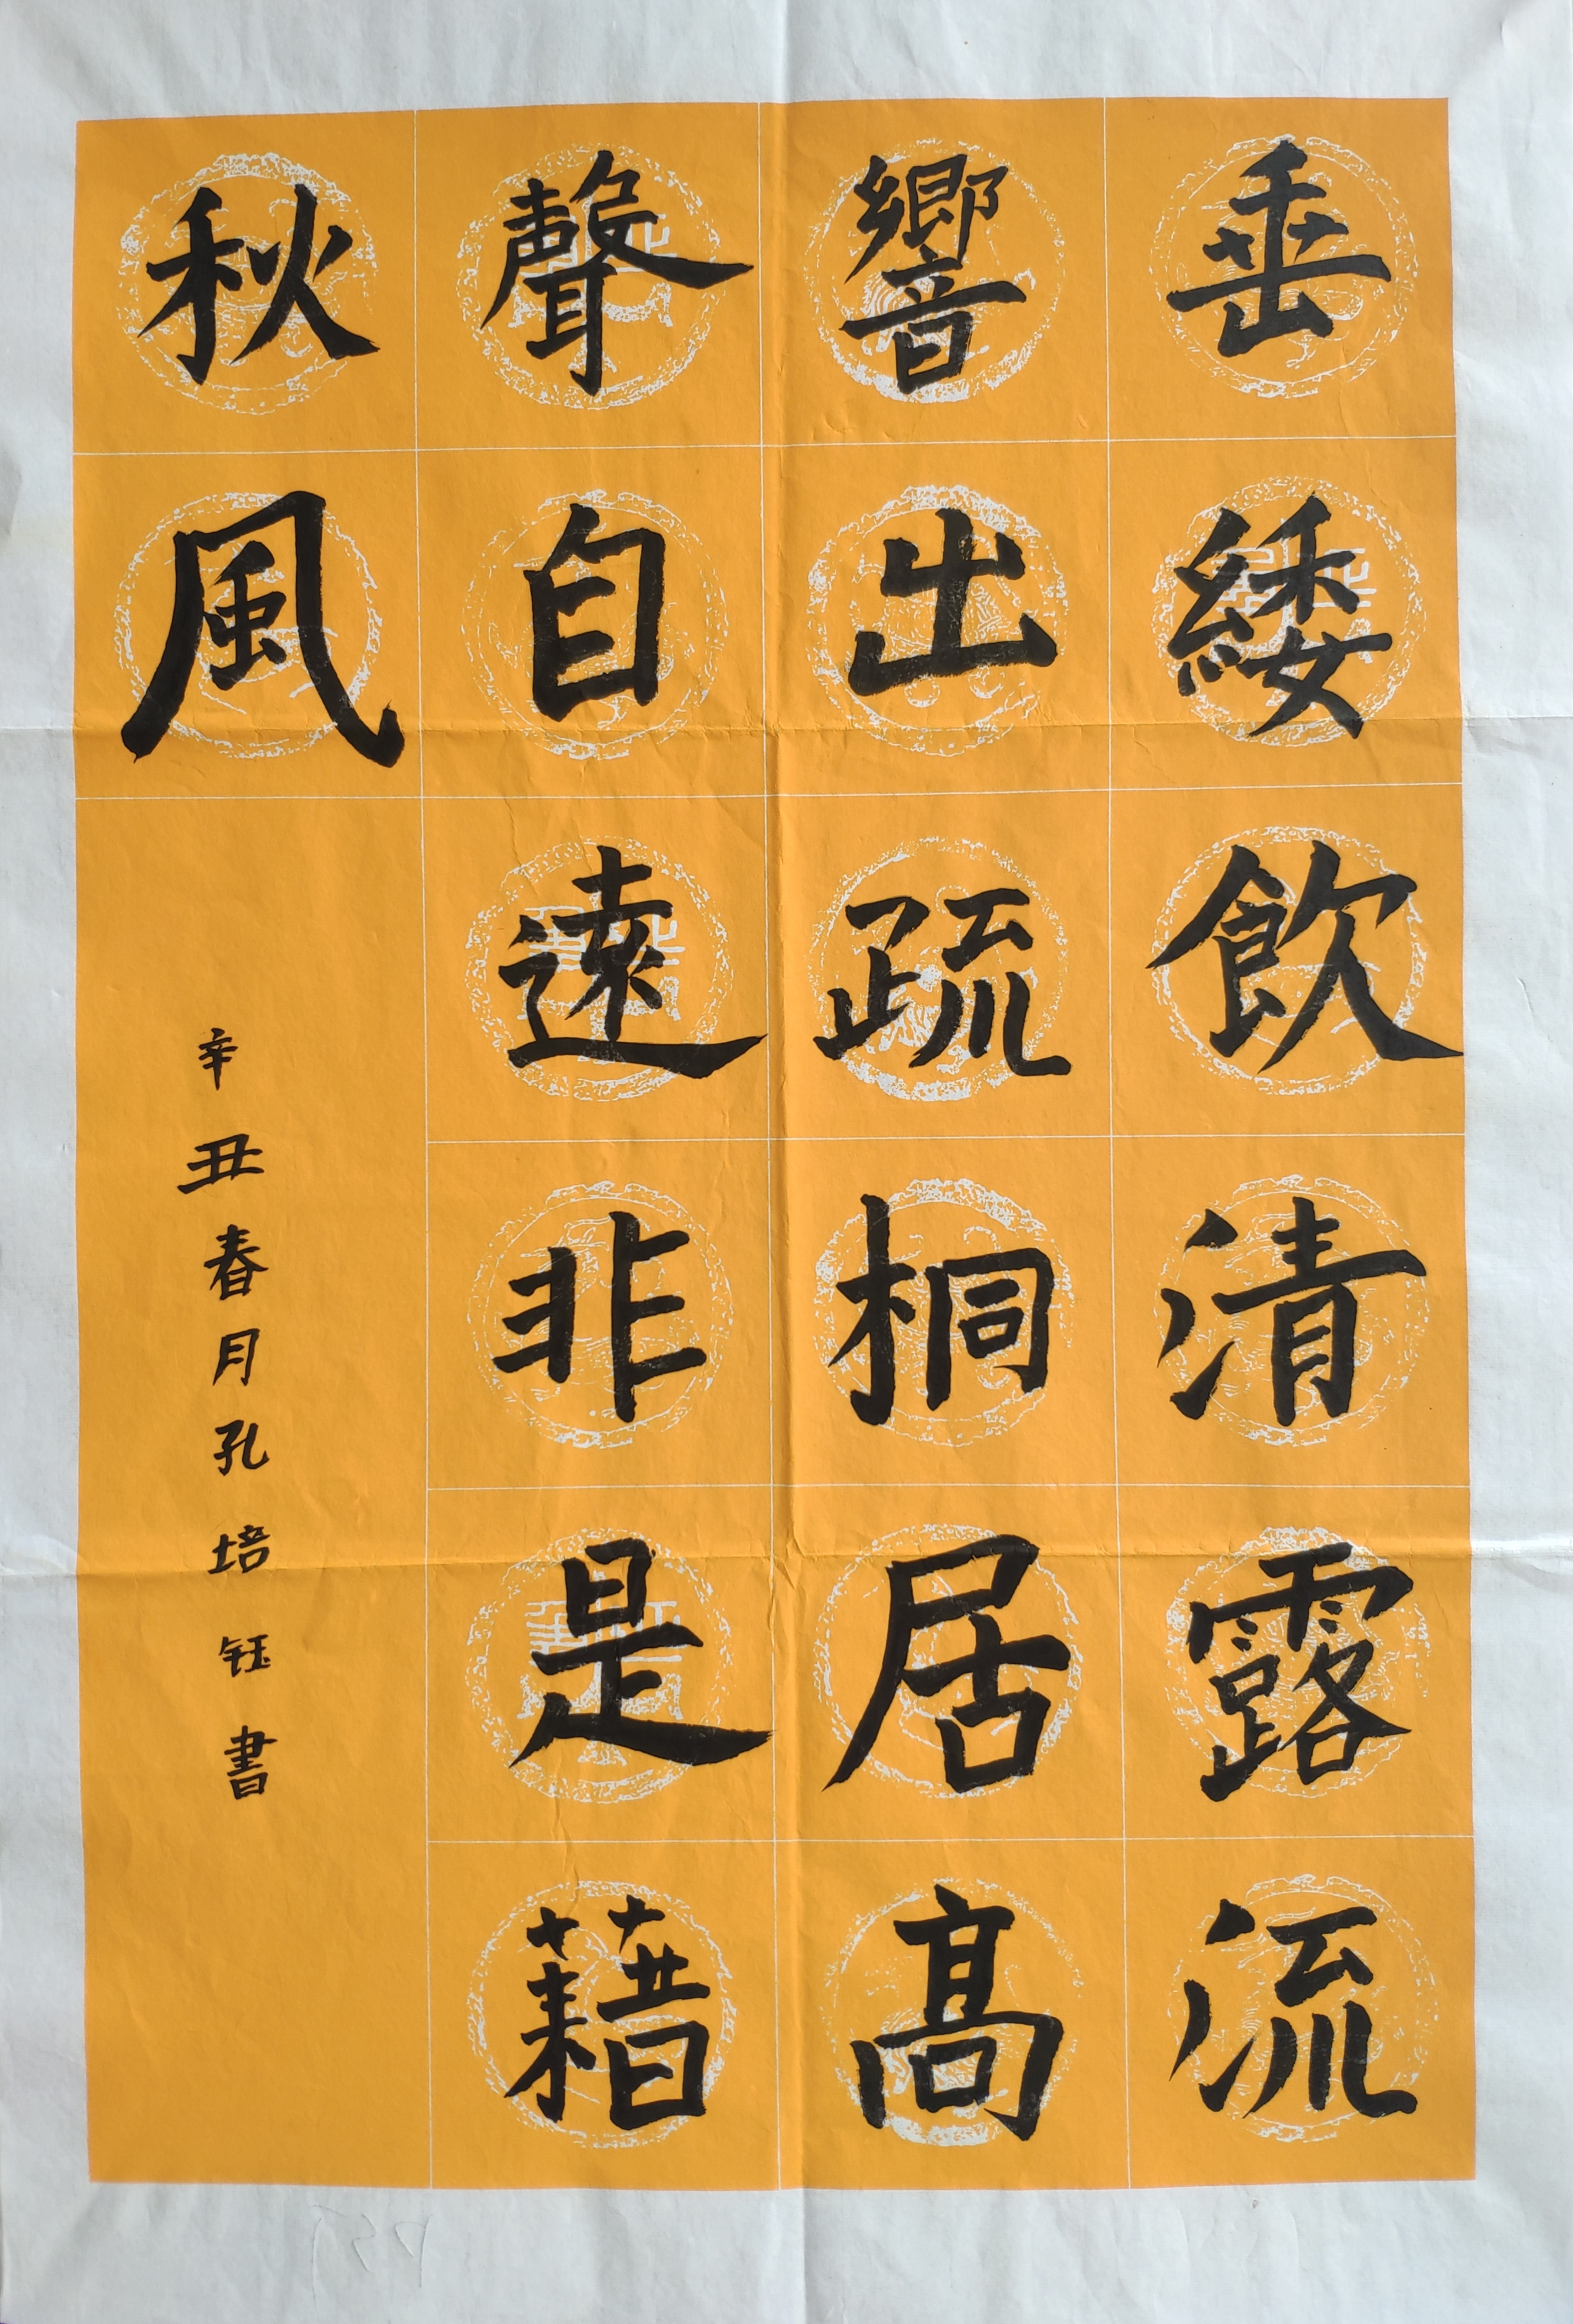 垂緌飲清露流
響出疏桐居高
聲自遠非是藉
秋風
辛丑春月孔培钰書